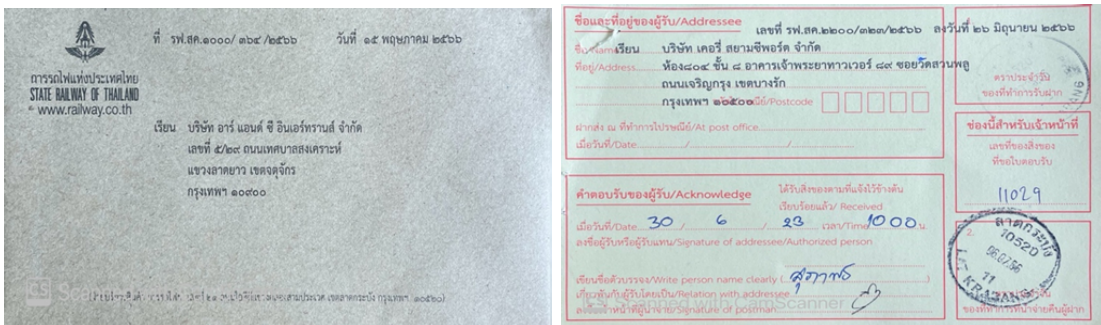 ที่ รฟ.สค.๑๐๐๐/ ๓๖๔ /๒๕๖๖ วันที่ ๑๕ พฤษภาคม ๒๕๖๖
การรถไฟแห่งประเทศไทย
STATE RAILWAY OF THAILAND
www.railway.co.th
เรียน บริษัท อาร์ แอนด์ ซี อินเอร์ทรานส์ จำกัด
เลขที่ ๕/๒๙ ถนนเทศบาลสงเคราะห์
แขวงลาดยาว เขตจตุจักร
กรุงเทพฯ ๑๐๙๐๐
CS
ชื่อและที่อยู่ของผู้รับ/Addressee
เลขที่ รฟ.สค.๒๒๐๐/๓๒๓/๒๕๖๖ ลงวันที่ ๒๖ มิถุนายน ๒๕๖๖
เรียน บริษัท เคอรี่ สยามซีพอร์ต จำกัด
ที่อยู่/Address ห้อง๘๐๔ ชั้น ๘ อาคารเจ้าพระยาทาวเวอร์ ๘๙ ซอยวัดสวนพลู
ถนนเจริญกรุง เขตบางรัก
กรุงเทพฯ ๑๐๕๐๐ /Postcode
ฝากส่ง ณ ที่ทำการไปรษณีย์/At post office
เมื่อวันที่/Date / /
ตราประจำวัน
ของที่ทำการรับฝาก
ช่องนี้สำหรับเจ้าหน้าที่
เลขที่ของสิ่งของ
ที่ขอใบตอบรับ
11029
คำตอบรับของผู้รับ/Acknowledge
ได้รับสิ่งของตามที่แจ้งไว้ข้างต้น
เรียบร้อยแล้ว/ Received
เมื่อวันที่/Date 30 / 6 / 23 เวลา/Time 10 00 น.
ลงชื่อผู้รับหรือผู้รับแทน/Signature of addressee/Authorized person
เขียนชื่อตัวบรรจง/Write person name clearly ( สุภาพร )
เกี่ยวพันกับผู้รับโดยเป็น/Relation with addressee
ลงชื่อเจ้าหน้าที่ผู้นำจ่าย/Signature of postman
Scanned with CamScanner
2.
ลาดกระบัง
10520
11
LAT KRABANG
ของที่ทำการที่นำจ่ายคืนผู้ฝาก